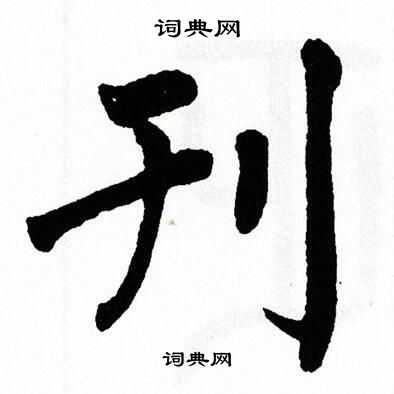 词典网
刊
词典网